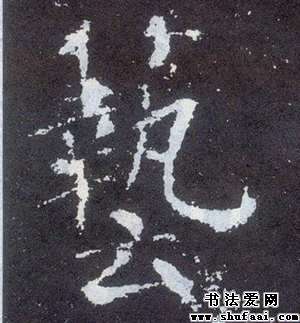 藝
书法爱网
www.shufaai.com